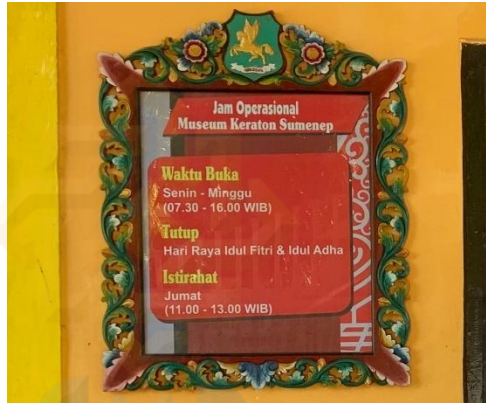 Jam Operasional
Museum Keraton Sumenep
Waktu Buka
Senin - Minggu
(07.30 - 16.00 WIB)
Tutup
Hari Raya Idul Fitri & Idul Adha
Istirahat
Jumat
(11.00 - 13.00 WIB)